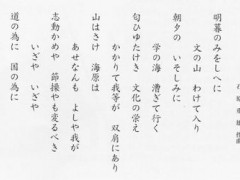 明暮のみをしへに
文の山 わけて入り
朝夕の いそしみに
学の海 漕ぎて行く
匂ひゆたけき 文化の栄え
かかりて我等が 双肩にあり
山はさけ 海原は
あせなんも よしや我が
志動かめや 節操や定るべき
いざや いざや
道の為に 国の為に